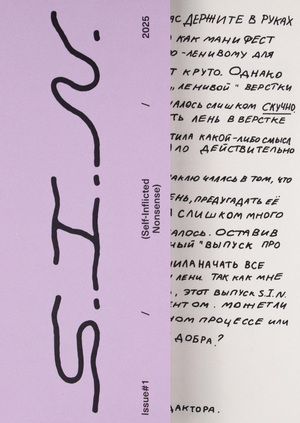 S.I.N.
Issue#1 / (Self-Inflicted
Nonsense) / 2025
ДЕРЖИТЕ В РУКАХ
КАК МАНИФЕСТ
-ЛЕНИВОМУ ДЛЯ
КРУТО. ОДНАКО
„ЛЕНИВОЙ“ ВЕРСТКИ
АЛОСЬ СЛИШКОМ СКУЧНО.
ТЬ ЛЕНЬ В ВЕРСТКЕ
ТИЛА КАКОЙ-ЛИБО СМЫСЛ
ЛО ДЕЙСТВИТЕЛЬНО
АКЛЮЧАЛАСЬ В ТОМ, ЧТО
ЕНЬ, ПРЕДУГАДАТЬ ЕЁ
СЛИШКОМ МНОГО
АЛОСЬ. ОСТАВИВ
НЫЙ“ ВЫПУСК ПРО
ШИЛА НАЧАТЬ ВСЕ
ЛЕНИ ТАК КАК МНЕ
, ЭТОТ ВЫПУСК S.I.N.
ЕНТОМ. МОЖЕТ ЛИ
НОМ ПРОЦЕССЕ ИЛИ
ДОБРА?
ДАКТОРА.